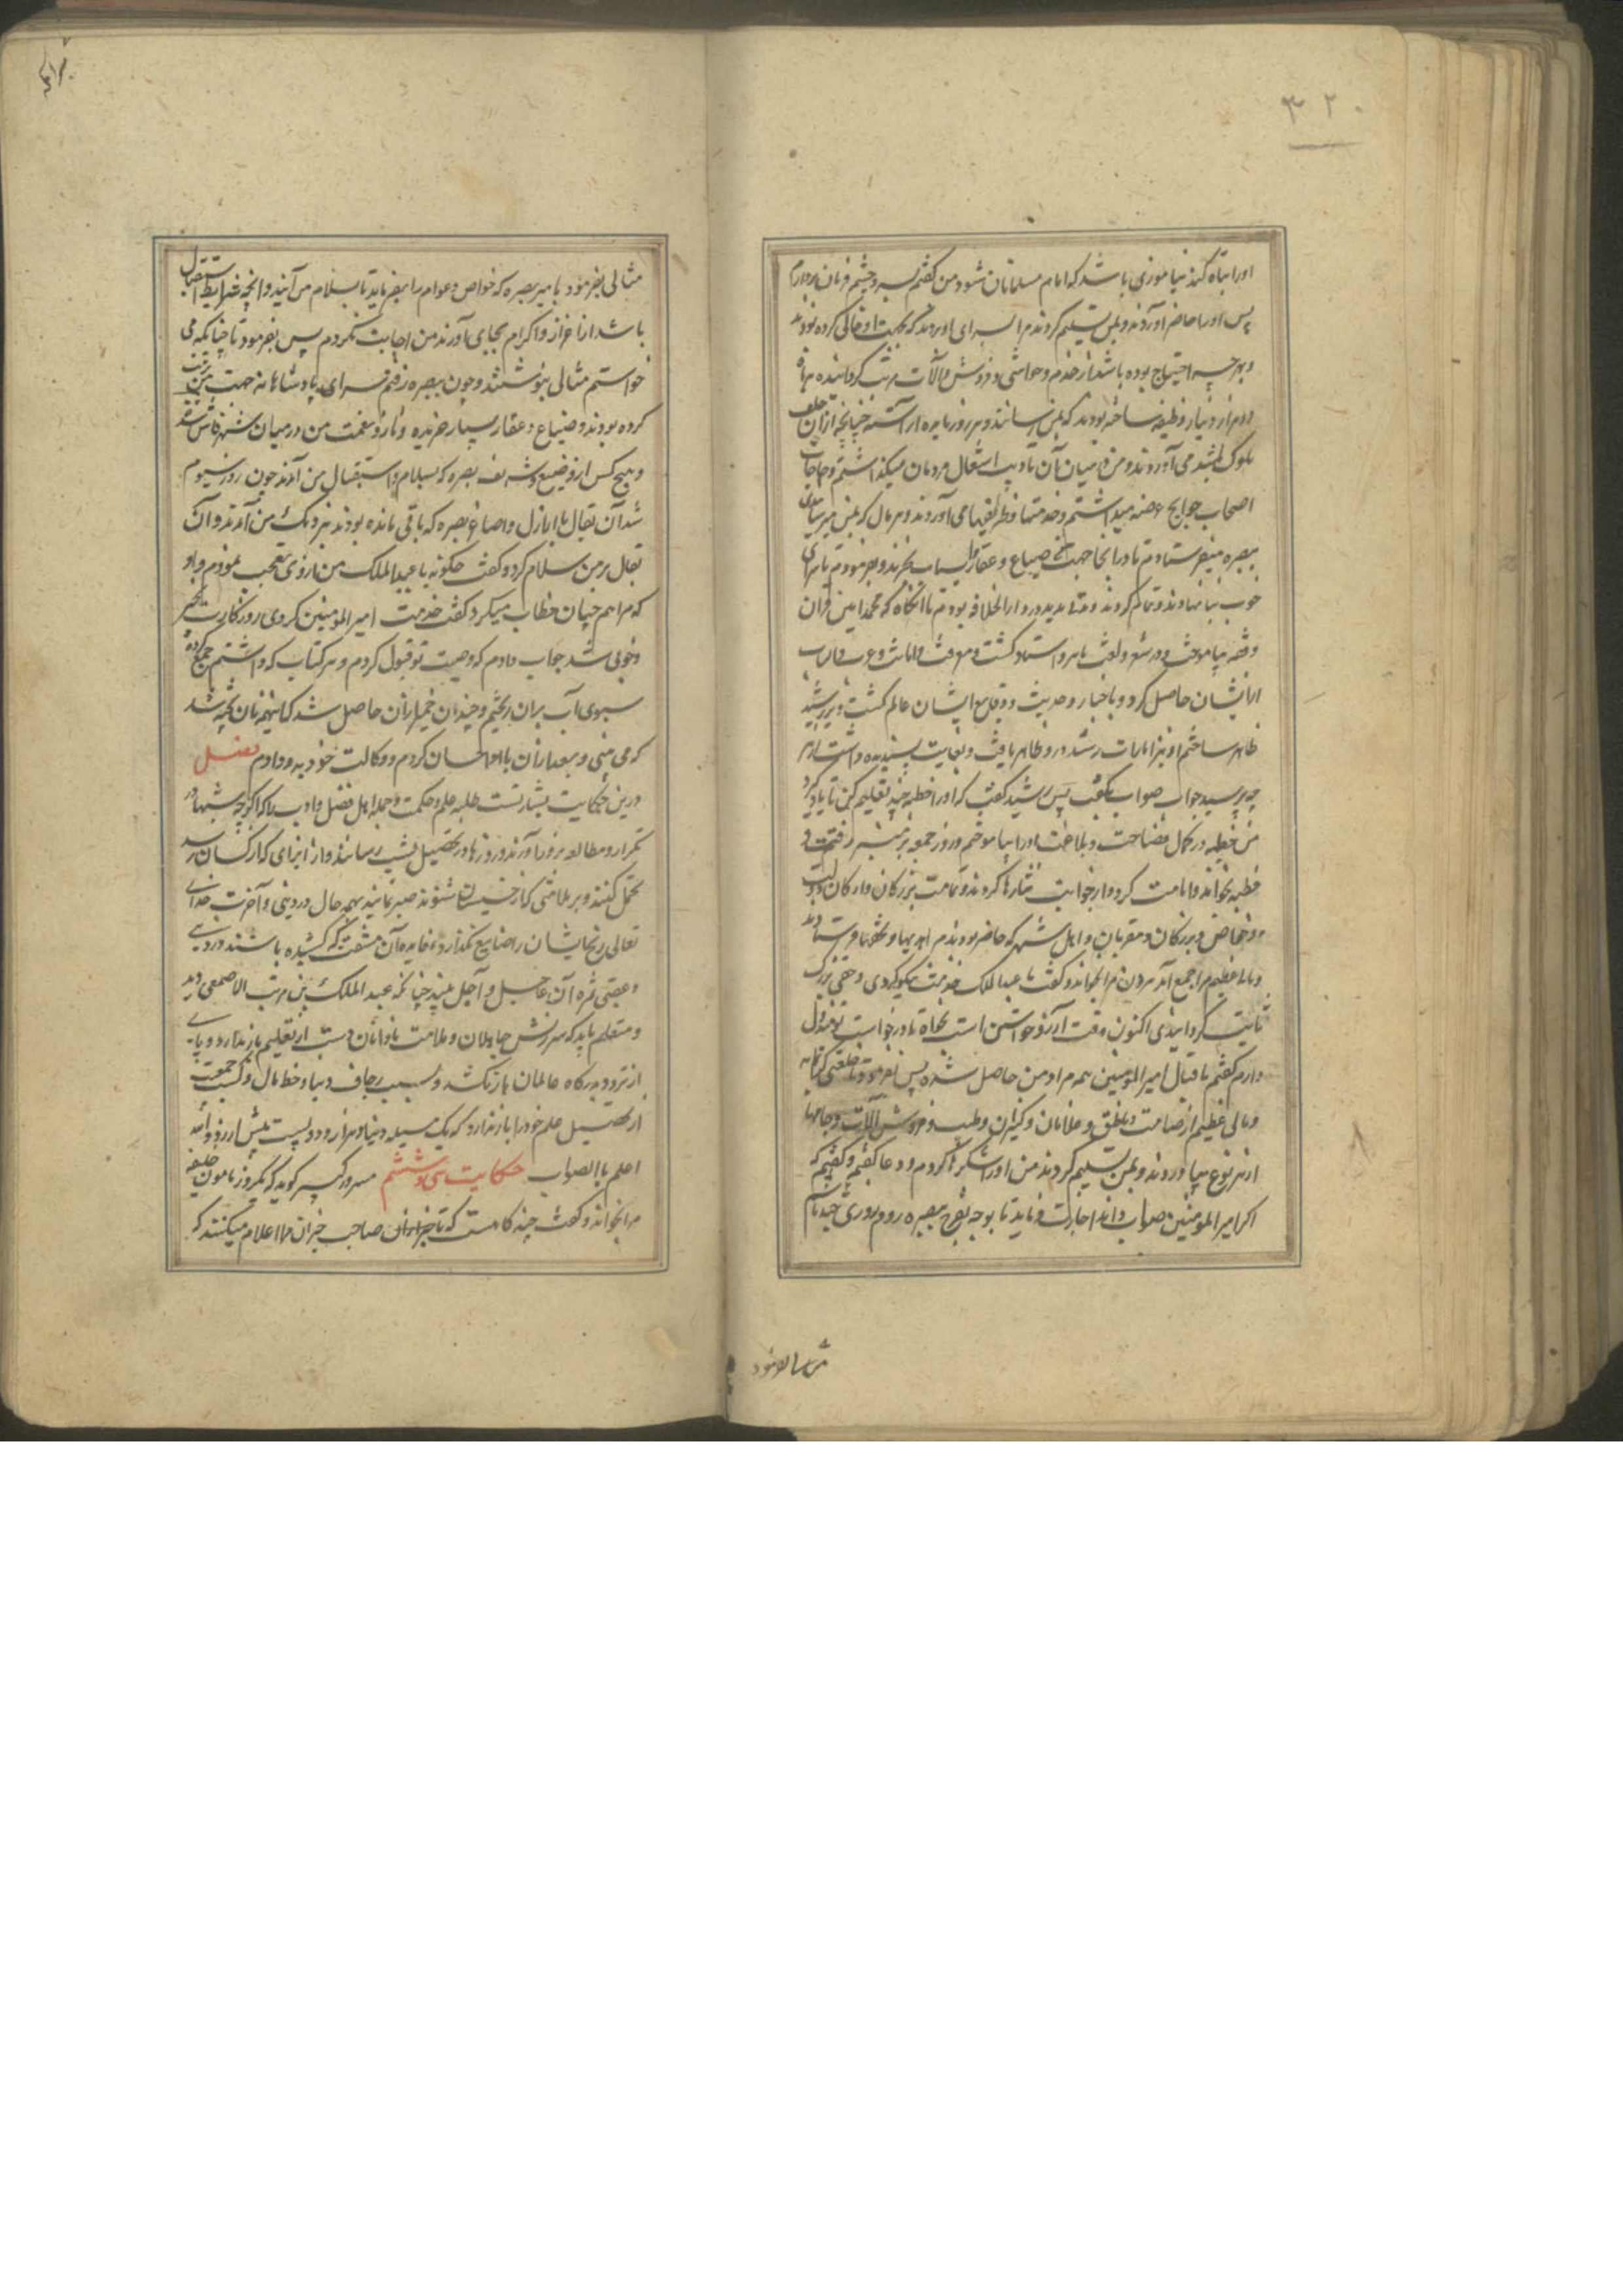 ۳۲۰
اورا تباه کند نیاموزی باشد که امام مسلمانان شود من کفتم بسر و چشم فرمان بردارم
پس اورا حاضر آوردند و بمن تسلیم کردند مرا بسرای اوردند که بجهت او خالی کرده بودند
و بهرچه احتیاج بوده باشد از خدم و حواشی و فروش و آلات مرتب کردانیده
ده هزار دینار وظیفه ساخته بودند که بمن رسانند و هر روز مایده اراسته چنانچه ازان
ملوک باشد می آوردند و من در میان آن تادیب اشغال مردمان میکذاشتم و حاجات
اصحاب حوایج عرضه میداشتم و خدمتها و ظریفیها می آوردند و هر مال که بمن میرسیدی
ببصره میفرستادم تا درانجا جهت ضیاع و عقار و اسباب بخرند و بفرمودم تا سرای
خوب بنا نهادند و تمام کردند و مدت مدید در دار الخلافه بودم تا انکاه که محمد امین قران
و فقه بیاموخت و در شعر و لغت ماهر و استاد کشت و معرفت و امانت و عرب
ازایشان حاصل کرد و باخبار و حدیث و وقایع ایشان عالم کشت و بر رشید
ظاهر ساختم او نیز امارات رشد درو ظاهر یافت و بغایت پسندیده داشت و از هر
چه پرسید جواب صواب بکفت پس رشید کفت که اورا خطبه چند تعلیم کن تا یاد کیرد
من خطبه در کمال فصاحت و بلاغت اورا بیاموختم و روز جمعه بر منبر رفت و
خطبه بخواند و امامت کرد و از جوانب نثارها کردند و تمامت بزرکان و ارکان دولت
و خواص و بزرکان و مقربان و اهل شهر که حاضر بودند مرا هدیها و تحفها فرستادند
و مال عظیم مرا جمع آمد هرون مرا بخواند و کفت یا عبد الملک خدمت نیکو کردی و حقی بزرک
ثابت کردانیدی اکنون وقت آرزو خواستن است بخواه تا درخواست تو مبذول
دارم کفتم باقبال امیر المومنین همه مراد من حاصل شده پس بفرمود تا خلعتی کرانمایه
و مالی عظیم از صامت و ناطق و غلامان و کنیزان و طیب و فروش و آلات و جامها
از هر نوع بیاوردند و بمن تسلیم کردند من اورا شکرها کردم و دعا کفتم و کفتم که
اکر امیر المومنین صواب داند اجازت فرماید تا بوجه تفرج ببصره روم و روزی چند باشم
مثالی بفرمود
مثالی بفرمود بامیر بصره که خواص و عوام را بفرماید تا بسلام من آیند و انچه شرایط استقبال
باشد از اعزاز و اکرام بجای آورند من اجابت نکردم پس بفرمود تا چنانکه می
خواستم مثالی بنوشتند و چون ببصره رفتم سرای پادشاهانه جهت من مرتب
کرده بودند و ضیاع و عقار بسیار خریده و آثار و نعمت من در میان شهر فاش شد
و هیچ کس از وضیع و شریف بصره که بسلام و استقبال من آمدند چون روز سیوم
شد آن بقال با ارذال و اصاغر بصره که باقی مانده بودند نزدیک من آمدند و آن
بقال بر من سلام کرد و کفت چکونه یا عبد الملک من از وی تعجب نمودم و او
که مرا هم چنان خطاب میکرد کفت خدمت امیر المومنین کردی روزکارت بخیر
و خوبی شد جواب دادم که وصیت تو قبول کردم و هر کتاب که داشتم جمع کرده
سبوی آب بران ریختم و چندان خمیر ازان حاصل شد که اینهمه نان پخته شد
که می بینی و بعد ازان با او احسان کردم و وکالت خود بدو دادم فصل
درین حکایت بشارتست طلبه علم و حکمت و جمله اهل فضل و ادب را که اکرچه شبها در
تکرار و مطالعه بروز آورند و روزها در تحصیل بشب رسانند و از ایذای که از کسان رسد
تحمل کنند و بر ملامتی که از خسیسان شنوند صبر نمایند بهمه حال در دینی و آخرت خدای
تعالی رنج ایشان را ضایع نکذارد و فایده آن مشقت که کشیده باشند در دنیی
و عقبی ثمره آن عاجل و آجل ببیند چنانکه عبد الملک بن قریب الاصمعی دید
و متعلم باید که سرزنش جاهلان و ملامت نادانان دست از تعلیم باز ندارد و پای
از تردد بدرکاه عالمان باز نکشد و بسبب زخارف دنیا و حظ مال و کسب جمعیت
از تحصیل علم خود را باز ندارد که یک مسیله دنیا و هزار و دویست بیش ارزد والله
اعلم بالصواب حکایت سی و ششم مسرور کبیر کوید که یکروز مامون خلیفه
مرا بخواند و کفت چند کاهست که تا خبرداران صاحب خبران مرا اعلام میکنند که